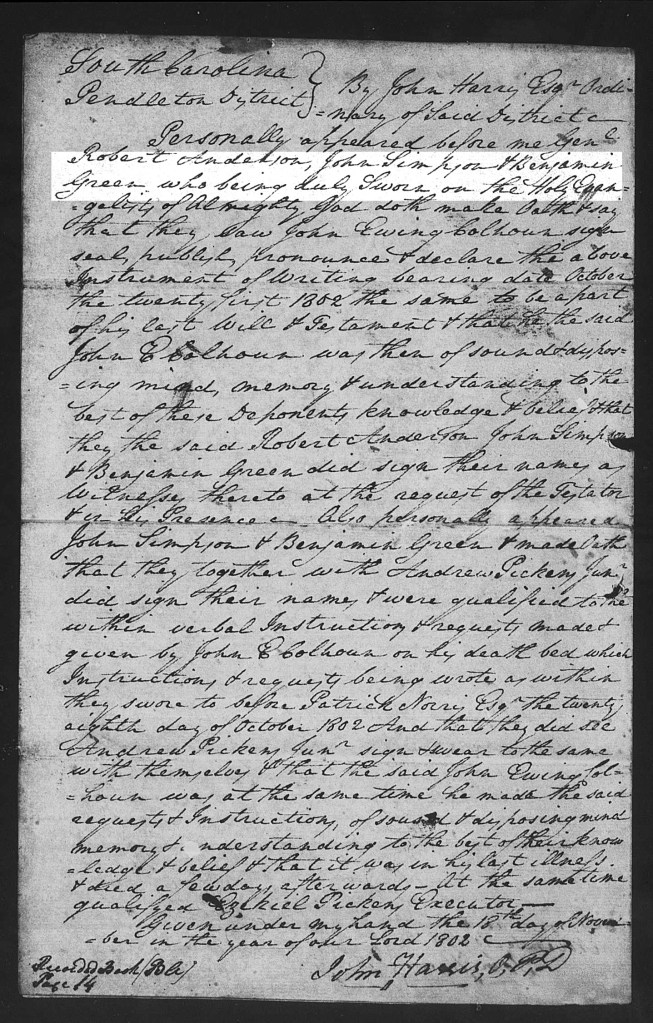 South Carolina
Pendleton District } By John Harris Esqr. Ordi-
=nary of Said District
Personally appeared before me Genl.
Robert Anderson, John Simpson & Benjamin
Green, who being duly Sworn on the Holy Evan-
=gelists of Almighty God doth make Oath & say
that they saw John Ewing Colhoun sign
seal, publish, pronounce & declare the above
Instrument of Writing bearing date October
the twenty first 1802 the same to be a part
of his last Will & Testament & that he the said
John E Colhoun was then of sound & dispos-
=ing mind, memory & understanding to the
best of these Deponents knowledge & belief & that
they the said Robert Anderson John Simpson
& Benjamin Green did sign their names as
Witnesses thereto at the request of the Testator
& in His Presence Also personally appeared
John Simpson & Benjamin Green & made Oath
that they together with Andrew Pickens Junr.
did sign their names & were qualified to the
within verbal Instructions & requests made &
given by John E Colhoun on his death bed which
Instructions & requests being wrote as within
they swore to before Patrick Norris Esqr. the twenty
eighth day of October 1802 And that they did see
Andrew Pickens Junr sign & swear to the same
with themselves & that the said John Ewing Col-
=houn was at the same time he made the said
requests & Instructions, of sound & disposing mind
memory & understanding to the best of their know
=ledge & belief & that it was in his last illness
& died a few days afterwards - At the same time
qualified Ezekiel Pickens Executor
Given under my hand the 18th day of Novem
=ber in the year of our Lord 1802
John Harris, O. P. D
Recorded Book
Page 14